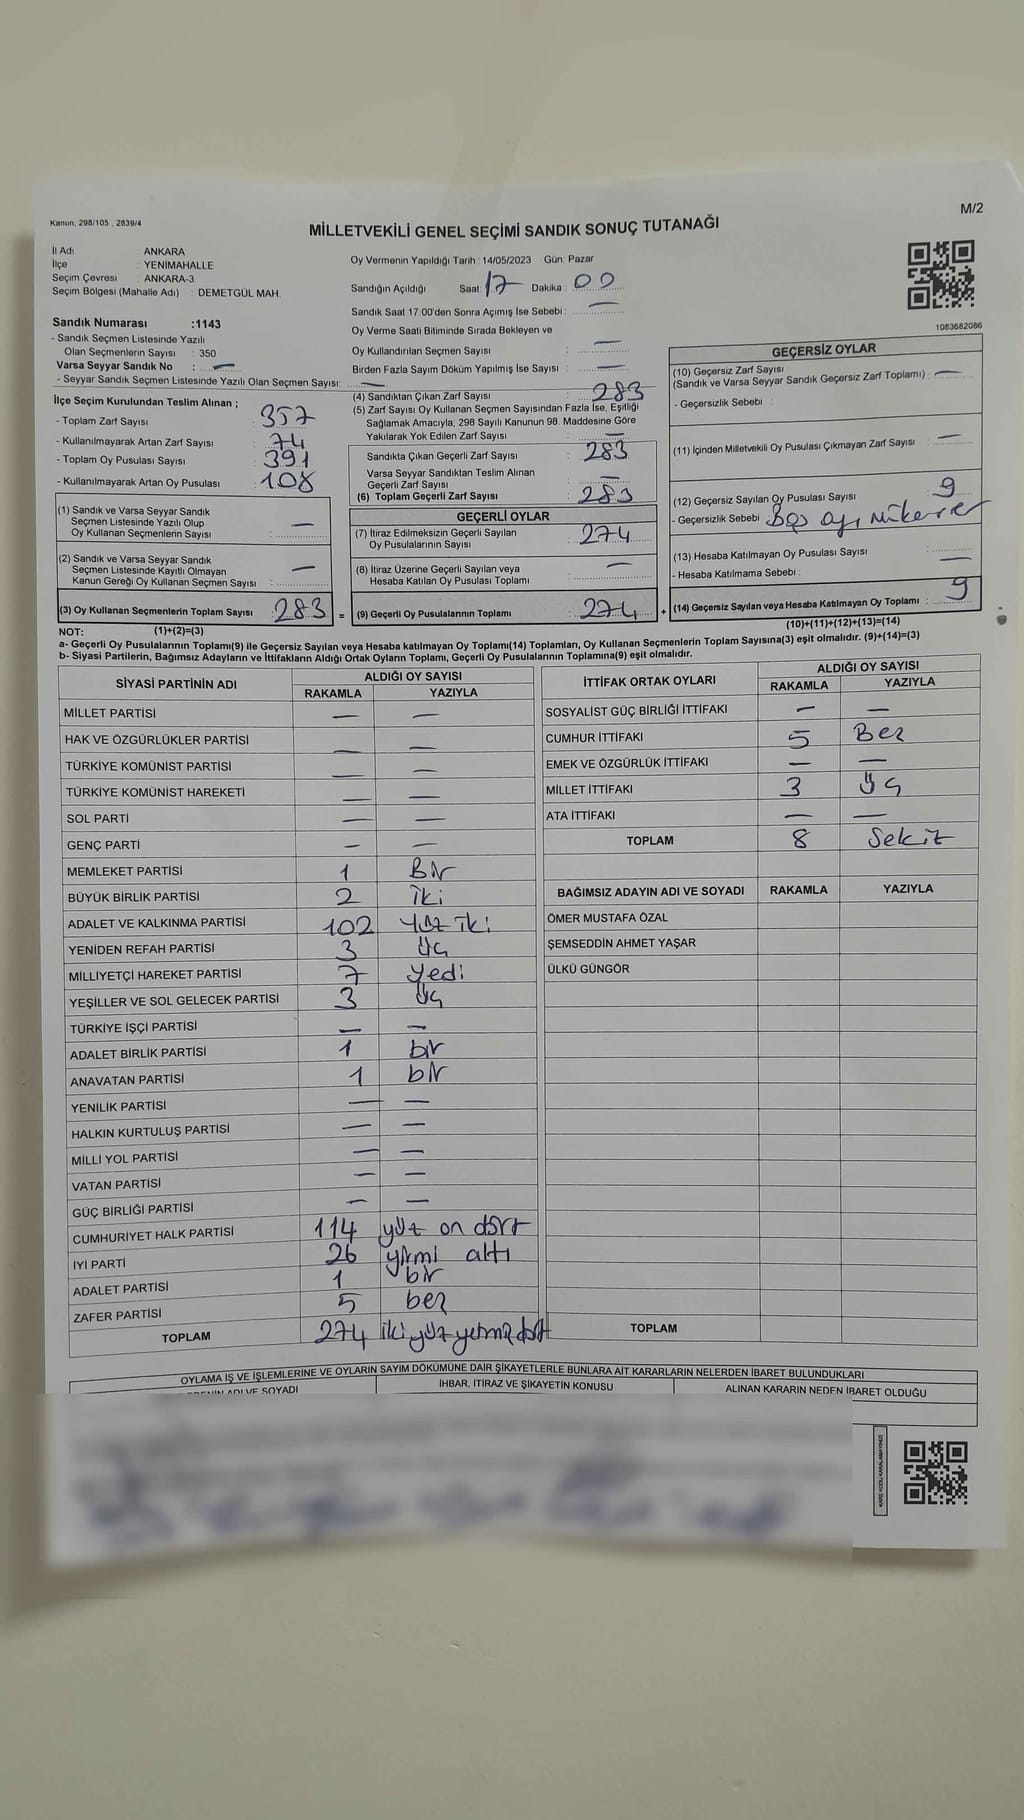 M/2
Kanun, 298/105 , 2839/4
MİLLETVEKİLİ GENEL SEÇİMİ SANDIK SONUÇ TUTANAĞI
İl Adı : ANKARA
İlçe : YENİMAHALLE
Seçim Çevresi : ANKARA-3
Seçim Bölgesi (Mahalle Adı) : DEMETGÜL MAH.
Sandık Numarası :1143
- Sandık Seçmen Listesinde Yazılı
Olan Seçmenlerin Sayısı : 350
Varsa Seyyar Sandık No : —
- Seyyar Sandık Seçmen Listesinde Yazılı Olan Seçmen Sayısı: —
Oy Vermenin Yapıldığı Tarih : 14/05/2023 Gün: Pazar
Sandığın Açıldığı Saat: 17 Dakika : 00
Sandık Saat 17.00'den Sonra Açımış İse Sebebi : —
Oy Verme Saati Bitiminde Sırada Bekleyen ve
Oy Kullandırılan Seçmen Sayısı : —
Birden Fazla Sayım Döküm Yapılmış İse Sayısı : —
1083682086
İlçe Seçim Kurulundan Teslim Alınan ;
- Toplam Zarf Sayısı : 357
- Kullanılmayarak Artan Zarf Sayısı : 74
- Toplam Oy Pusulası Sayısı : 391
- Kullanılmayarak Artan Oy Pusulası : 108
(1) Sandık ve Varsa Seyyar Sandık
Seçmen Listesinde Yazılı Olup
Oy Kullanan Seçmenlerin Sayısı : —
(2) Sandık ve Varsa Seyyar Sandık
Seçmen Listesinde Kayıtlı Olmayan
Kanun Gereği Oy Kullanan Seçmen Sayısı : —
(3) Oy Kullanan Seçmenlerin Toplam Sayısı : 283 =
(1)+(2)=(3)
(4) Sandıktan Çıkan Zarf Sayısı : 283
(5) Zarf Sayısı Oy Kullanan Seçmen Sayısından Fazla İse, Eşitliği
Sağlamak Amacıyla, 298 Sayılı Kanunun 98. Maddesine Göre
Yakılarak Yok Edilen Zarf Sayısı : —
Sandıkta Çıkan Geçerli Zarf Sayısı : 283
Varsa Seyyar Sandıktan Teslim Alınan
Geçerli Zarf Sayısı : —
(6) Toplam Geçerli Zarf Sayısı : 283
GEÇERLİ OYLAR
(7) İtiraz Edilmeksizin Geçerli Sayılan
Oy Pusulalarının Sayısı : 274
(8) İtiraz Üzerine Geçerli Sayılan veya
Hesaba Katılan Oy Pusulası Toplamı : —
(9) Geçerli Oy Pusulalarının Toplamı : 274 +
GEÇERSİZ OYLAR
(10) Geçersiz Zarf Sayısı
(Sandık ve Varsa Seyyar Sandık Geçersiz Zarf Toplamı) : —
- Geçersizlik Sebebi :
(11) İçinden Milletvekili Oy Pusulası Çıkmayan Zarf Sayısı : —
(12) Geçersiz Sayılan Oy Pusulası Sayısı : 9
- Geçersizlik Sebebi : Boş oy,
(13) Hesaba Katılmayan Oy Pusulası Sayısı :
- Hesaba Katılmama Sebebi : —
(14) Geçersiz Sayılan veya Hesaba Katılmayan Oy Toplamı : 9
(10)+(11)+(12)+(13)=(14)
NOT:
a- Geçerli Oy Pusulalarının Toplamı(9) ile Geçersiz Sayılan veya Hesaba katılmayan Oy Toplamı(14) Toplamları, Oy Kullanan Seçmenlerin Toplam Sayısına(3) eşit olmalıdır. (9)+(14)=(3)
b- Siyasi Partilerin, Bağımsız Adayların ve İttifakların Aldığı Ortak Oyların Toplamı, Geçerli Oy Pusulalarının Toplamına(9) eşit olmalıdır.
SİYASİ PARTİNİN ADI ALDIĞI OY SAYISI
RAKAMLA YAZIYLA
MİLLET PARTİSİ — —
HAK VE ÖZGÜRLÜKLER PARTİSİ — —
TÜRKİYE KOMÜNİST PARTİSİ — —
TÜRKİYE KOMÜNİST HAREKETİ — —
SOL PARTİ — —
GENÇ PARTİ — —
MEMLEKET PARTİSİ 1 Bir
BÜYÜK BİRLİK PARTİSİ 2 iki
ADALET VE KALKINMA PARTİSİ 102 yüz iki
YENİDEN REFAH PARTİSİ 3 üç
MİLLİYETÇİ HAREKET PARTİSİ 7 yedi
YEŞİLLER VE SOL GELECEK PARTİSİ 3 üç
TÜRKİYE İŞÇİ PARTİSİ — —
ADALET BİRLİK PARTİSİ 1 bir
ANAVATAN PARTİSİ 1 bir
YENİLİK PARTİSİ — —
HALKIN KURTULUŞ PARTİSİ — —
MİLLİ YOL PARTİSİ — —
VATAN PARTİSİ — —
GÜÇ BİRLİĞİ PARTİSİ — —
CUMHURİYET HALK PARTİSİ 114 yüz on dört
İYİ PARTİ 26 yirmi altı
ADALET PARTİSİ 1 bir
ZAFER PARTİSİ 5 beş
TOPLAM 274 iki yüz yetmiş dört
İTTİFAK ORTAK OYLARI ALDIĞI OY SAYISI
RAKAMLA YAZIYLA
SOSYALİST GÜÇ BİRLİĞİ İTTİFAKI — —
CUMHUR İTTİFAKI 5 Beş
EMEK VE ÖZGÜRLÜK İTTİFAKI — —
MİLLET İTTİFAKI 3 üç
ATA İTTİFAKI — —
TOPLAM 8 Sekiz
BAĞIMSIZ ADAYIN ADI VE SOYADI RAKAMLA YAZIYLA
ÖMER MUSTAFA ÖZAL
ŞEMSEDDİN AHMET YAŞAR
ÜLKÜ GÜNGÖR
TOPLAM
OYLAMA İŞ VE İŞLEMLERİNE VE OYLARIN SAYIM DÖKÜMÜNE DAİR ŞİKAYETLERLE BUNLARA AİT KARARLARIN NELERDEN İBARET BULUNDUKLARI
ADI VE SOYADI İHBAR, İTİRAZ VE ŞİKAYETİN KONUSU ALINAN KARARIN NEDEN İBARET OLDUĞU